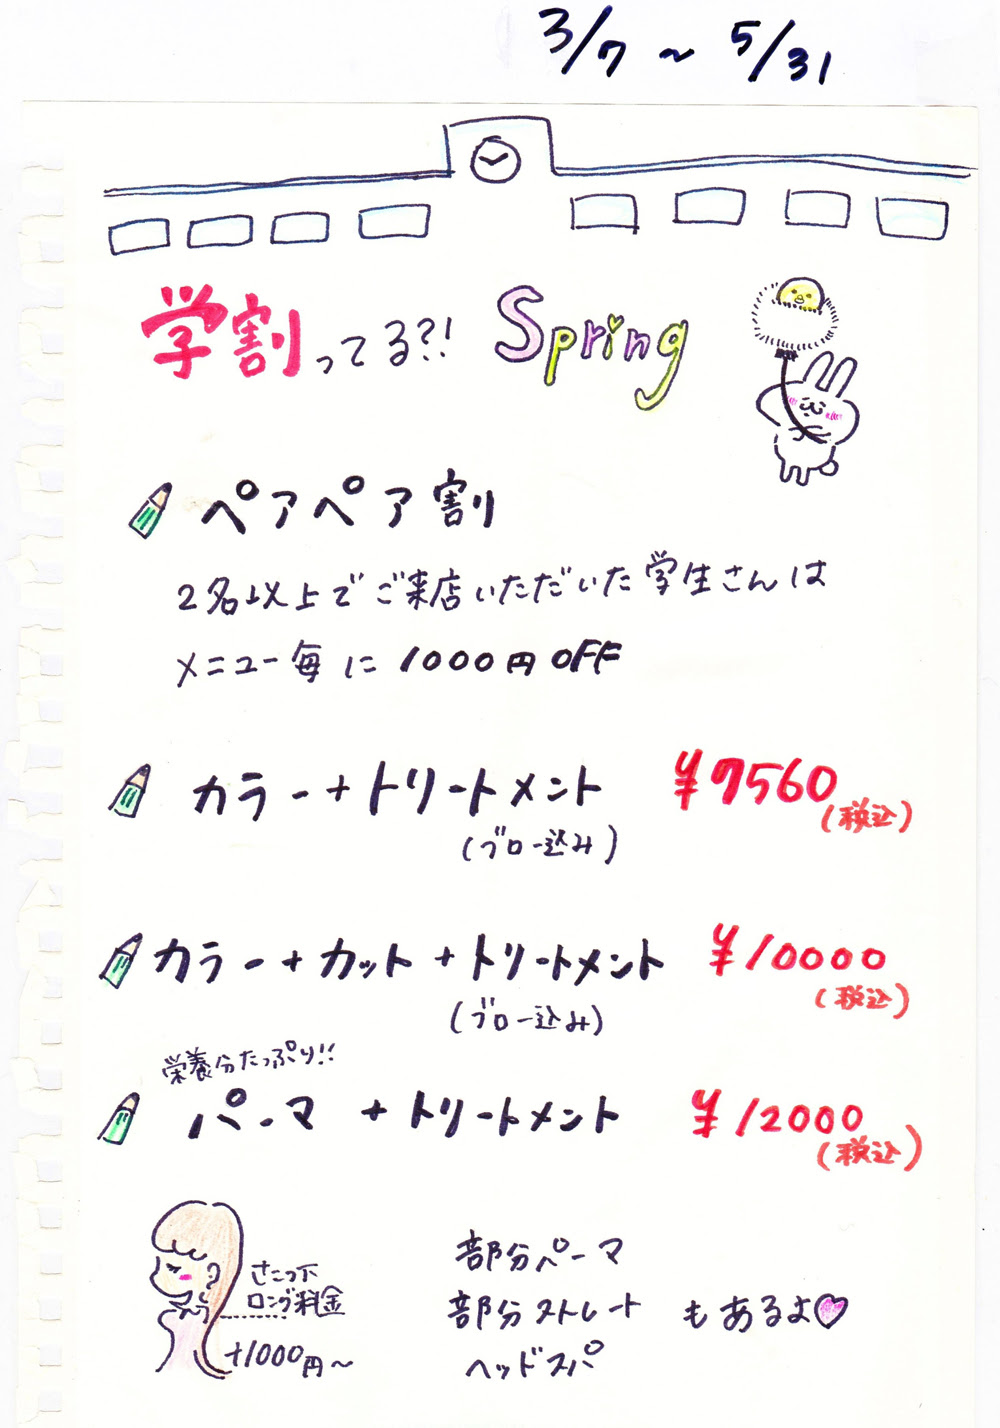 3/7 ~ 5/31
学割ってる?! Spring
ペアペア割
2名以上でご来店いただいた学生さんは
メニュー毎に1000円OFF
カラー+トリートメント ¥7560(税込)
(ブロー込み)
カラー+カット+トリートメント ¥10000(税込)
(ブロー込み)
栄養分たっぷり!!
パーマ+トリートメント ¥12000(税込)
さこつ下
ロング料金
+1000円〜
部分パーマ
部分ストレート もあるよ♡
ヘッドスパ